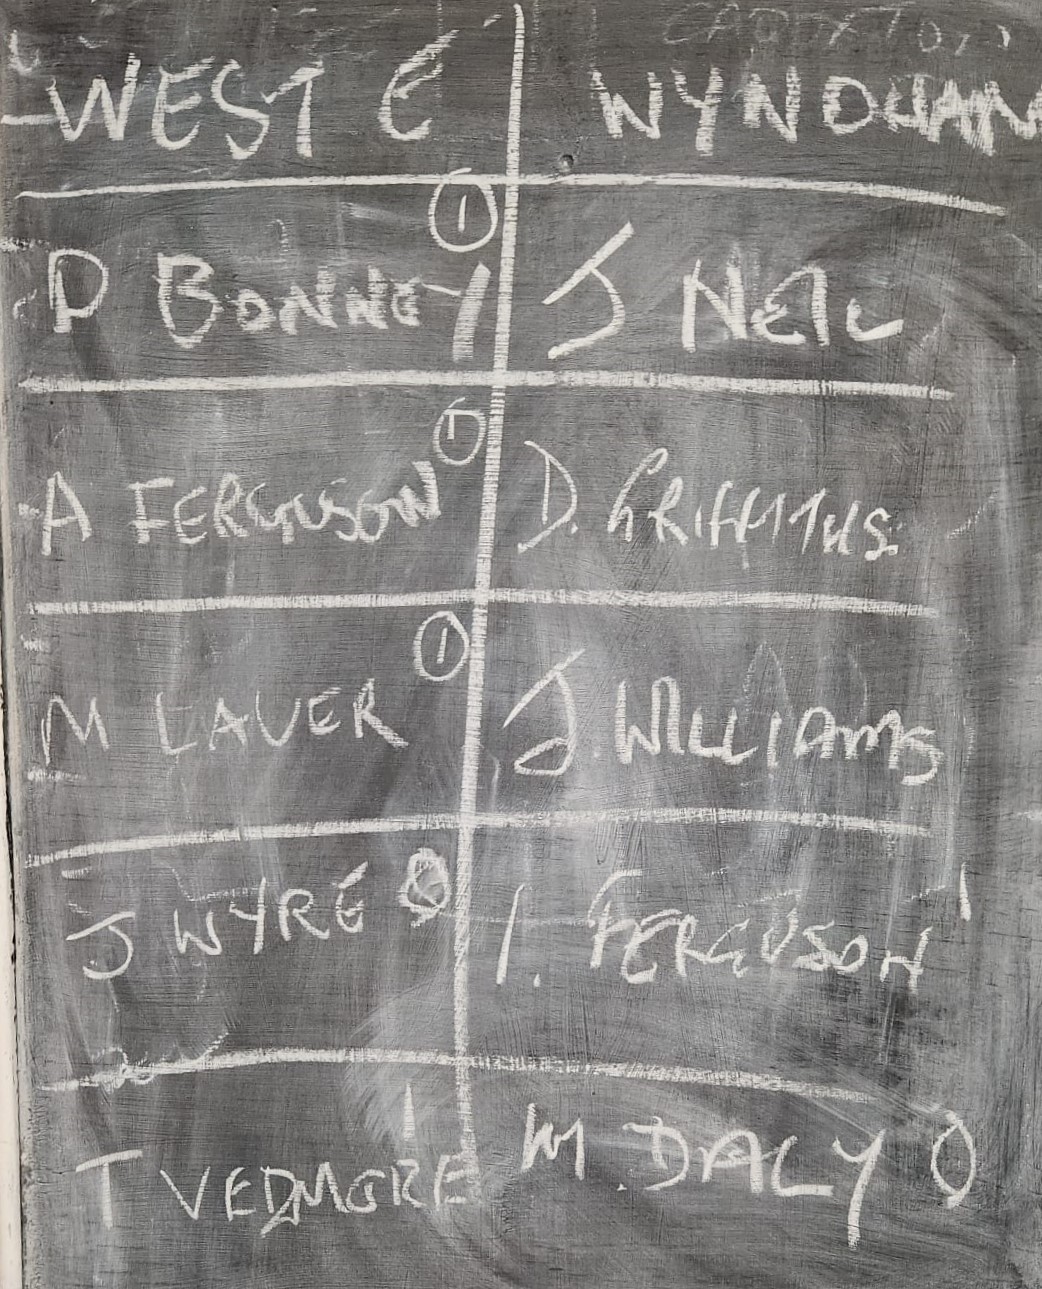 WEST E WYNDHAM
①
D BONNEY J NEIL
①
A FERGUSON D. GRIFFITHS
①
M LAVER J. WILLIAMS
J WYRE 0 I. FERGUSON 1
1
T VEDMORE M. DALY 0